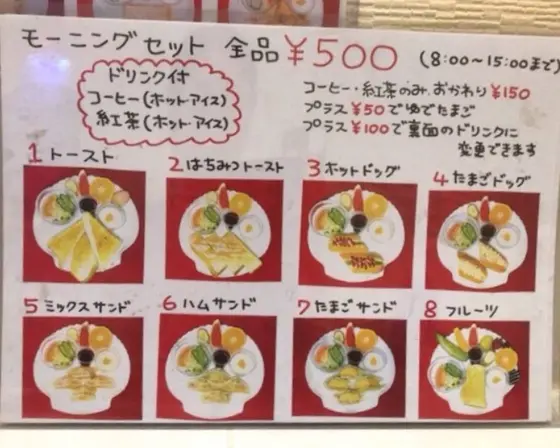 モーニングセット 全品 ¥500 (8:00～15:00まで)
ドリンク付
コーヒー(ホット・アイス)
紅茶(ホット・アイス)
コーヒー・紅茶のみ、おかわり¥150
プラス¥50でゆでたまご
プラス¥100で裏面のドリンクに
変更できます
1 トースト
2 はちみつトースト
3 ホットドッグ
4 たまごドッグ
5 ミックスサンド
6 ハムサンド
7 たまごサンド
8 フルーツ